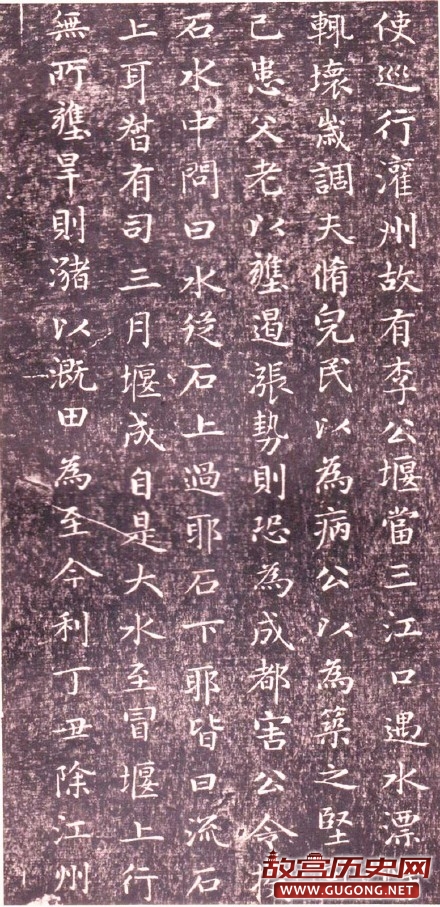 使巡行灌州故有李公堰當三江口遇水漂
輒壞歲調夫脩完民以為病公以為築之堅
已患父老以壅遏漲勢則恐為成都害公令
石水中問曰水從石上過耶石下耶皆曰流石
上耳督有司三月堰成自是大水至冒堰上行
無所壅旱則瀦以溉田為至今利丁丑除江州
故宫历史网
WWW.GUGONG.NET